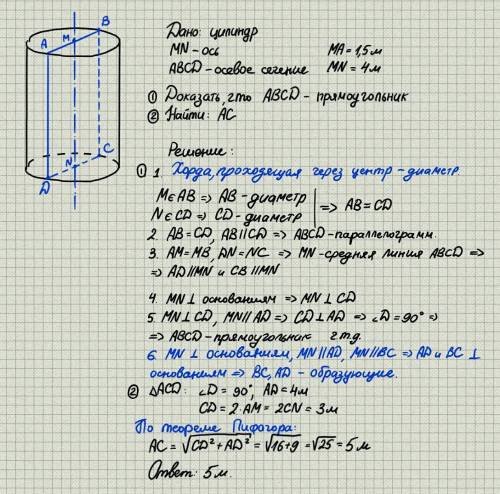 Дано: цилиндр
MN - ось MA = 1,5 м
ABCD - осевое сечение MN = 4 м
① Доказать, что ABCD - прямоугольник
② Найти: AC
Решение:
① 1. Хорда, проходящая через центр - диаметр.
M∈AB => AB - диаметр
N∈CD => CD - диаметр => AB = CD
2. AB = CD, AB∥CD => ABCD - параллелограмм.
3. AM = MB, DN = NC => MN - средняя линия ABCD =>
=> AD∥MN и CB∥MN
4. MN ⊥ основаниям => MN ⊥ CD
5. MN ⊥ CD, MN∥AD => CD ⊥ AD => ∠D = 90° =>
=> ABCD - прямоугольник чтд.
6. MN ⊥ основаниям, MN∥AD, MN∥BC => AD и BC ⊥
основаниям => BC, AD - образующие.
② △ACD: ∠D = 90°, AD = 4 м
CD = 2·AM = 2CN = 3 м
По теореме Пифагора:
AC = √CD² + AD² = √16+9 = √25 = 5 м
Ответ: 5 м.
B
M
A
N
C
D